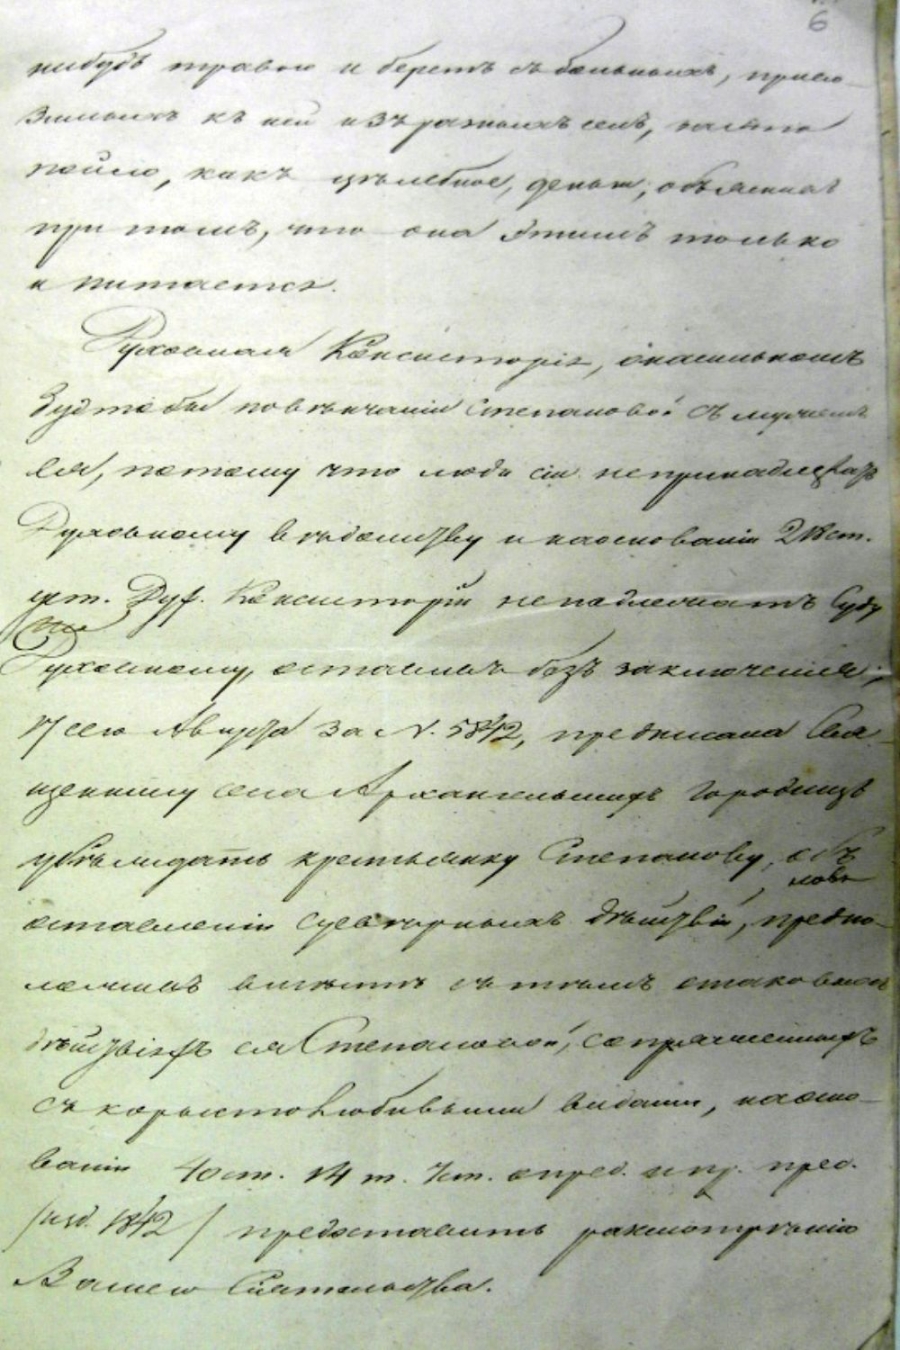 6
нибудь травою и беретъ съ больныхъ, приво-
зимыхъ къ ней изъ разныхъ селъ, за это
пойло, какъ цѣлебное, деньги, объясняя
при томъ, что она этимъ только
и питается.
Духовная Консисторія, о насильномъ
будтобы повѣнчаніи Степановой съ мужемъ
ея, потому что люди сіи непринадлежатъ
Духовному вѣдомству и наоснованіи 218 ст.
уст. Дух. Консисторіи неподлежатъ Суду
Духовному, оставивъ безъ заключенія,
17 сего Августа за N. 5842, предписала Свя-
щеннику села Архангельскихъ Городищъ
убѣждать крестьянку Степанову, объ
оставленіи суевѣрныхъ дѣйствій, предпо-
ложивъ вмѣстѣ съ тѣмъ отаковыхъ
дѣйствіяхъ ея Степановой, сопряженныхъ
съ корыстолюбивыми видами, наосно-
ваніи 40 ст. 14 т. уст. опред. и пр. прес.
/изд. 1842/ представить разсмотрѣнію
Вашего Сіятельства.